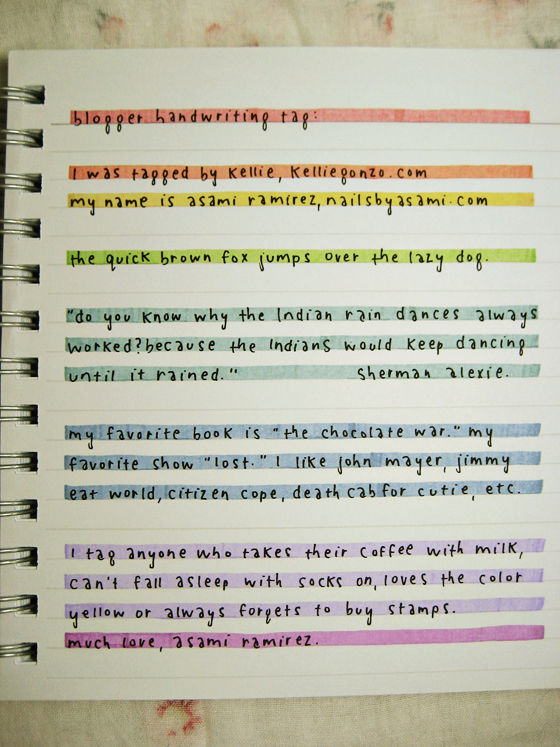 blogger handwriting tag:
I was tagged by Kellie, Kelliegonzo.com
my name is asami ramirez, nailsbyasami.com
the quick brown fox jumps over the lazy dog.
"do you know why the Indian rain dances always
worked? because the Indians would keep dancing
until it rained." Sherman alexie.
my favorite book is "the chocolate war." my
favorite show "lost." I like john mayer, jimmy
eat world, citizen cope, death cab for cutie, etc.
I tag anyone who takes their coffee with milk,
can't fall asleep with socks on, loves the color
yellow or always forgets to buy stamps.
much love, asami ramirez.